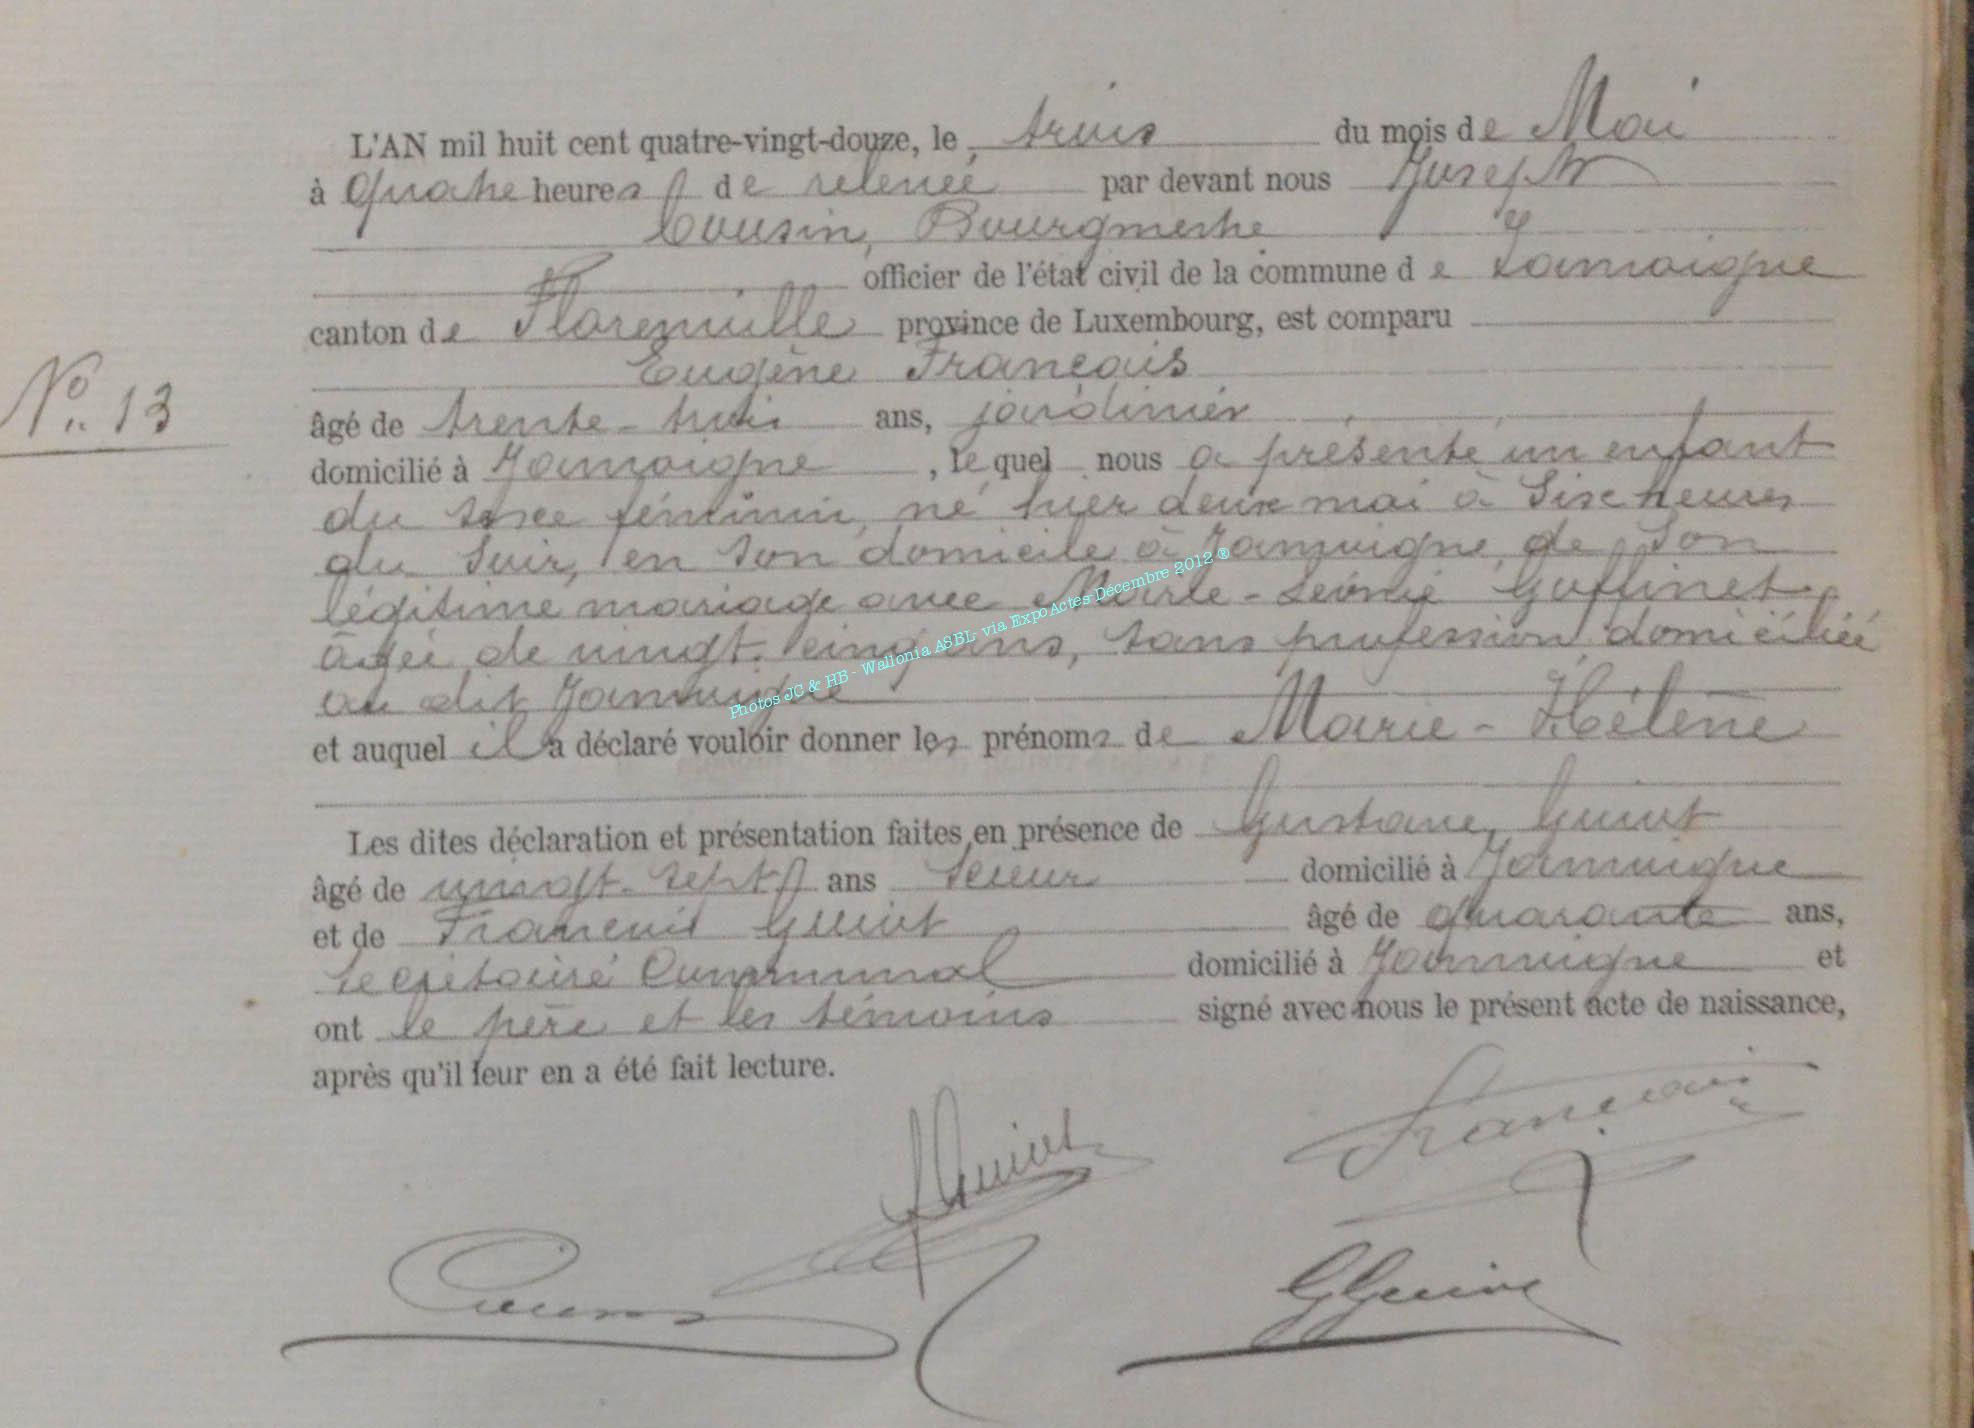 L'AN mil huit cent quatre-vingt-douze, le trois du mois de Mai
à Quatre heures de relevée par devant nous Joseph
Cousin, Bourgmestre
officier de l'état civil de la commune de Jamoigne
canton de Florenville province de Luxembourg, est comparu
Eugène François
N° 13
âgé de trente-trois ans, jardinier
domicilié à Jamoigne, lequel nous a présenté un enfant
du sexe féminin, né hier deux mai à Six heures
du Soir, en son domicile à Jamoigne, de Son
légitime mariage avec Marie-Léonie Goffinet
âgée de vingt-cinq ans, sans profession, domiciliée
au dit Jamoigne
et auquel il a déclaré vouloir donner les prénoms de Marie-Hélène
Les dites déclaration et présentation faites en présence de Gustave Guiot
âgé de vingt-sept ans domicilié à Jamoigne
et de François Guiot âgé de quarante ans,
secrétaire Communal domicilié à Jamoigne et
ont le père et les témoins signé avec nous le présent acte de naissance,
après qu'il leur en a été fait lecture.
François
Guiot
Cousin
GGuiot
Photos JC & HB - Wallonia ASBL- via ExpoActes-Décembre 2012 ®